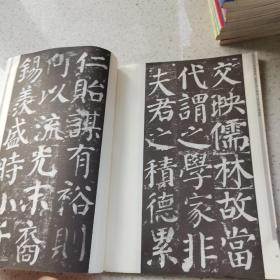 交映儒林故當
代謂之學家非
夫君之積德累
仁貽謀有裕則
何以流光末裔
錫羨盛時小子